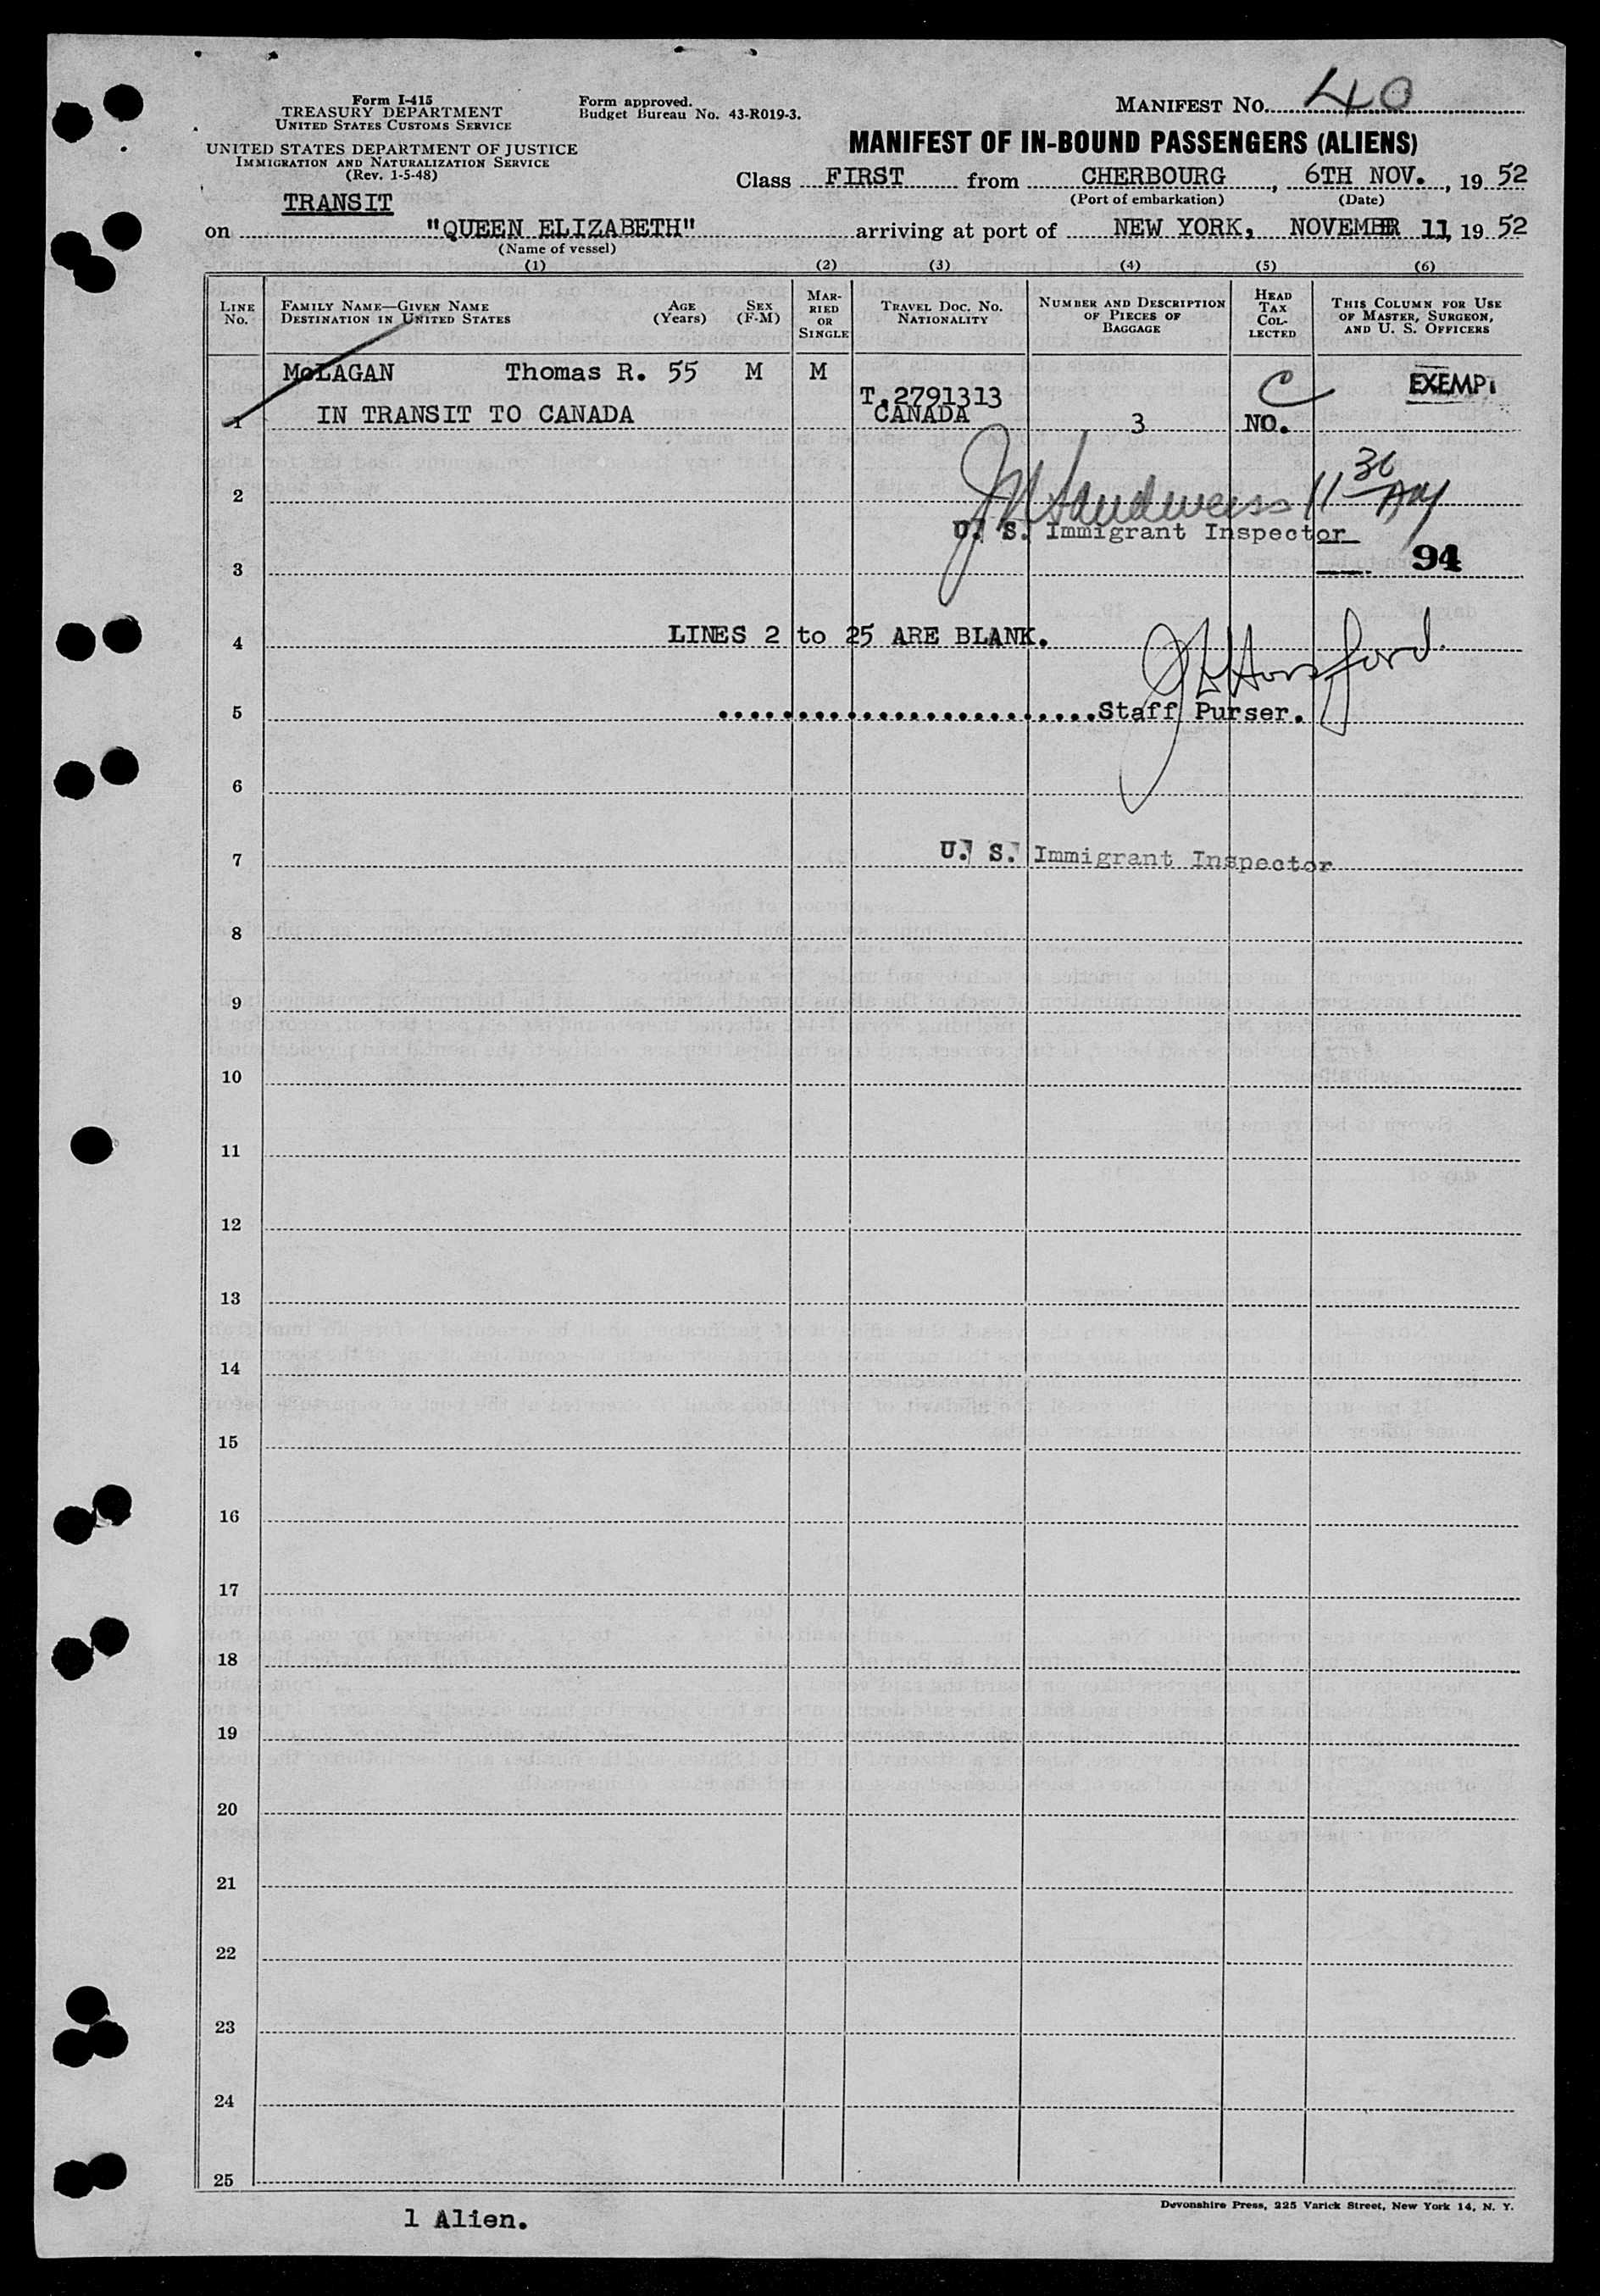 Form I-415
TREASURY DEPARTMENT
UNITED STATES CUSTOMS SERVICE
UNITED STATES DEPARTMENT OF JUSTICE
IMMIGRATION AND NATURALIZATION SERVICE
(Rev. 1-5-48)
Form approved.
Budget Bureau No. 43-R019-3.
MANIFEST NO. 40
MANIFEST OF IN-BOUND PASSENGERS (ALIENS)
Class FIRST from CHERBOURG, 6TH NOV., 19 52
(Port of embarkation) (Date)
TRANSIT
on "QUEEN ELIZABETH" arriving at port of NEW YORK, NOVEMBER 11, 19 52
(Name of vessel)
(1) (2) (3) (4) (5) (6)
LINE NO. FAMILY NAME—GIVEN NAME DESTINATION IN UNITED STATES AGE (Years) SEX (F-M) MARRIED OR SINGLE TRAVEL DOC. NO. NATIONALITY NUMBER AND DESCRIPTION OF PIECES OF BAGGAGE HEAD TAX COLLECTED THIS COLUMN FOR USE OF MASTER, SURGEON, AND U. S. OFFICERS
McLAGAN Thomas R. 55 M M C EXEMPT
T.2791313
1 IN TRANSIT TO CANADA CANADA 3 NO.
2 11 30 AM
U. S. Immigrant Inspector
3 94
4 LINES 2 to 25 ARE BLANK.
J Horsford.
5 Staff Purser.
6
7 U. S. Immigrant Inspector
8
9
10
11
12
13
14
15
16
17
18
19
20
21
22
23
24
25
Devonshire Press, 225 Varick Street, New York 14, N. Y.
1 Alien.